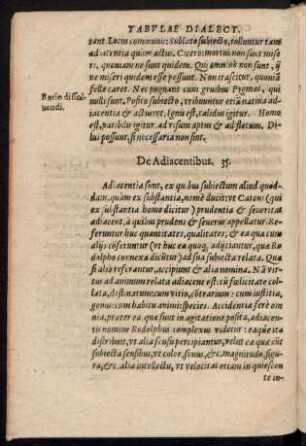 TABVLAE DIALECT.
tant Locus communis: Sublato subiecto, tolluntur tam
adiacentia quàm actus. Cicero: mortui non sunt mise
ri, quoniam ne sunt quidem. Qui omnino non sunt, ij
ne miseri quidem esse possunt. Non irascitur, quoniã
felle caret. Nec pugnant cum gruibus Pygmæi, qui
nulli sunt. Posito subiecto, tribuuntur etiã natiua ad
iacentia & actus: vt, Ignis est, calidus igitur. Homo
est, paribile igitur, ad risum aptus & ad fletum. Di
lui possunt, si necessaria non sint.
Ratio dissol-
uendi.
De Adiacentibus. 35.
Adiacentia sunt, ex quibus subiectum aliud quod-
dam, quàm ex substantia, nomē ducit: vt Catoni (qui
ex substantia homo dicitur) prudentia & seueritas
adiacent, à quibus prudens & seuerus appellatur. Re
feruntur huc quantitates, qualitates, & ea quæ cum
alijs cōferuntur (vt huc ea quoq, adijciantur, quæ Ro
dolpho cōnexa dicūtur) ad sua subiecta relata. Quæ
si alio referantur, accipiunt & alia nomina. Nā vir-
tus ad animum relata adiacens est: cū fœlicitate col
lata, destinatum: cum vitio, cōtrarium: cum iustitia,
genus: cum habitu animi: species. Accidentia ferè om
nia, præter ea quæ sunt in agitatione posita, adiacen-
tiū nomine Rodolphus complexus videtur: eaque ita
distribuit, vt alia sensu percipiantur, velut ea quæ sūt
subiecta sensibus, vt color, sonus, &c. magnitudo, figu
ra, &c. alia intellectu, vt velocitas etiam in quiescen
te in-